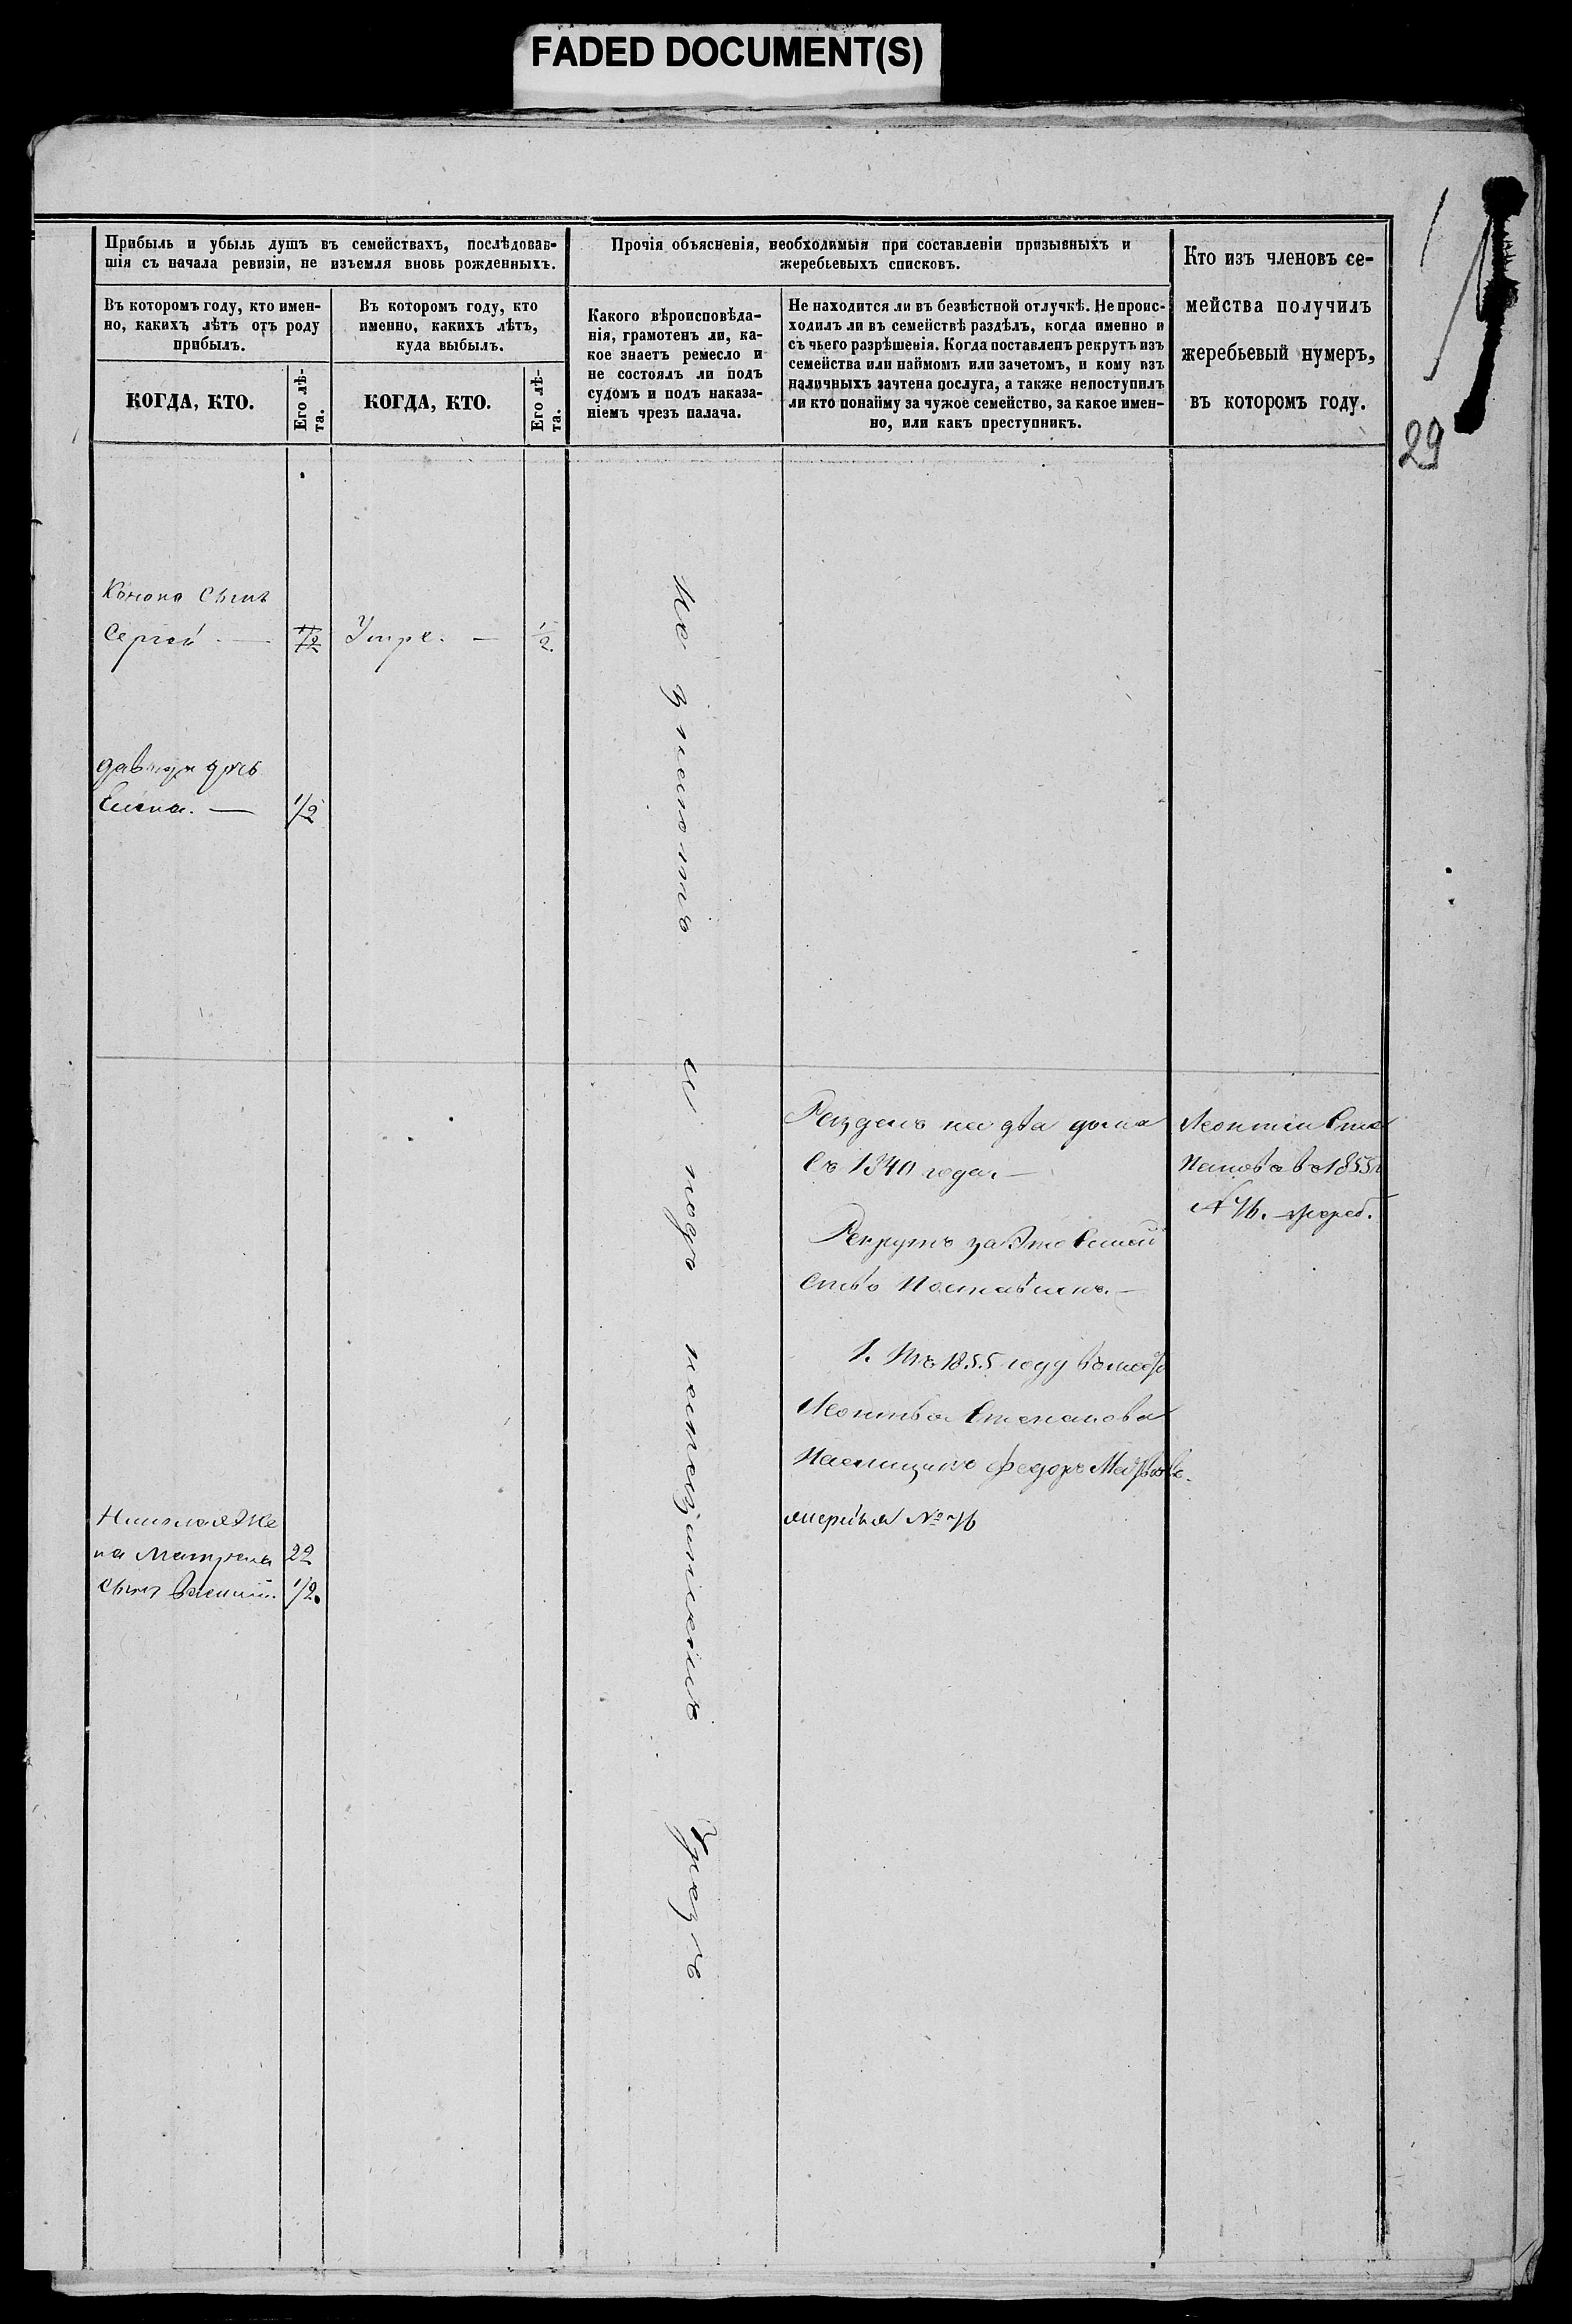 FADED DOCUMENT(S)
Прибыль и убыль душъ въ семействахъ, послѣдовав-
шія съ начала ревизіи, не изъемля вновь рожденныхъ.
Прочія объясненія, необходимыя при составленіи призывныхъ и
жеребьевыхъ списковъ.
Кто изъ членовъ се-
мейства получилъ
жеребьевый нумеръ,
въ которомъ году.
Въ которомъ году, кто имен-
но, какихъ лѣтъ отъ роду
прибылъ.
Въ которомъ году, кто
именно, какихъ лѣтъ,
куда выбылъ.
Какого вѣроисповѣда-
нія, грамотенъ ли, ка-
кое знаетъ ремесло и
не состоялъ ли подъ
судомъ и подъ наказа-
ніемъ чрезъ палача.
Не находится ли въ безвѣстной отлучкѣ. Не проис-
ходилъ ли въ семействѣ раздѣлъ, когда именно и
съ чьего разрѣшенія. Когда поставленъ рекрутъ изъ
семейства или наймомъ или зачетомъ, и кому изъ
наличныхъ зачтена послуга, а также непоступилъ
ли кто понайму за чужое семейство, за какое имен-
но, или какъ преступникъ.
КОГДА, КТО.
Его лѣ-
та.
КОГДА, КТО.
Его лѣ-
та.
29
Конона Сынъ
Сергей. — 1/2 Умре. — 1/2.
дочь
Елена. — 1/2
Не и подъ чрезъ
Разделъ на два дома
Съ 1840 года. —
Рекрутъ за Это Семей
Ство Поставленъ. —
1. 1855 году
Леонтья Степанова
Наемщикъ Федоръ
№ 76
Леонтіи Сте
панова 1855
№ 76. жереб.
Николая Же
на Матрена 22
Сынъ 1/2.